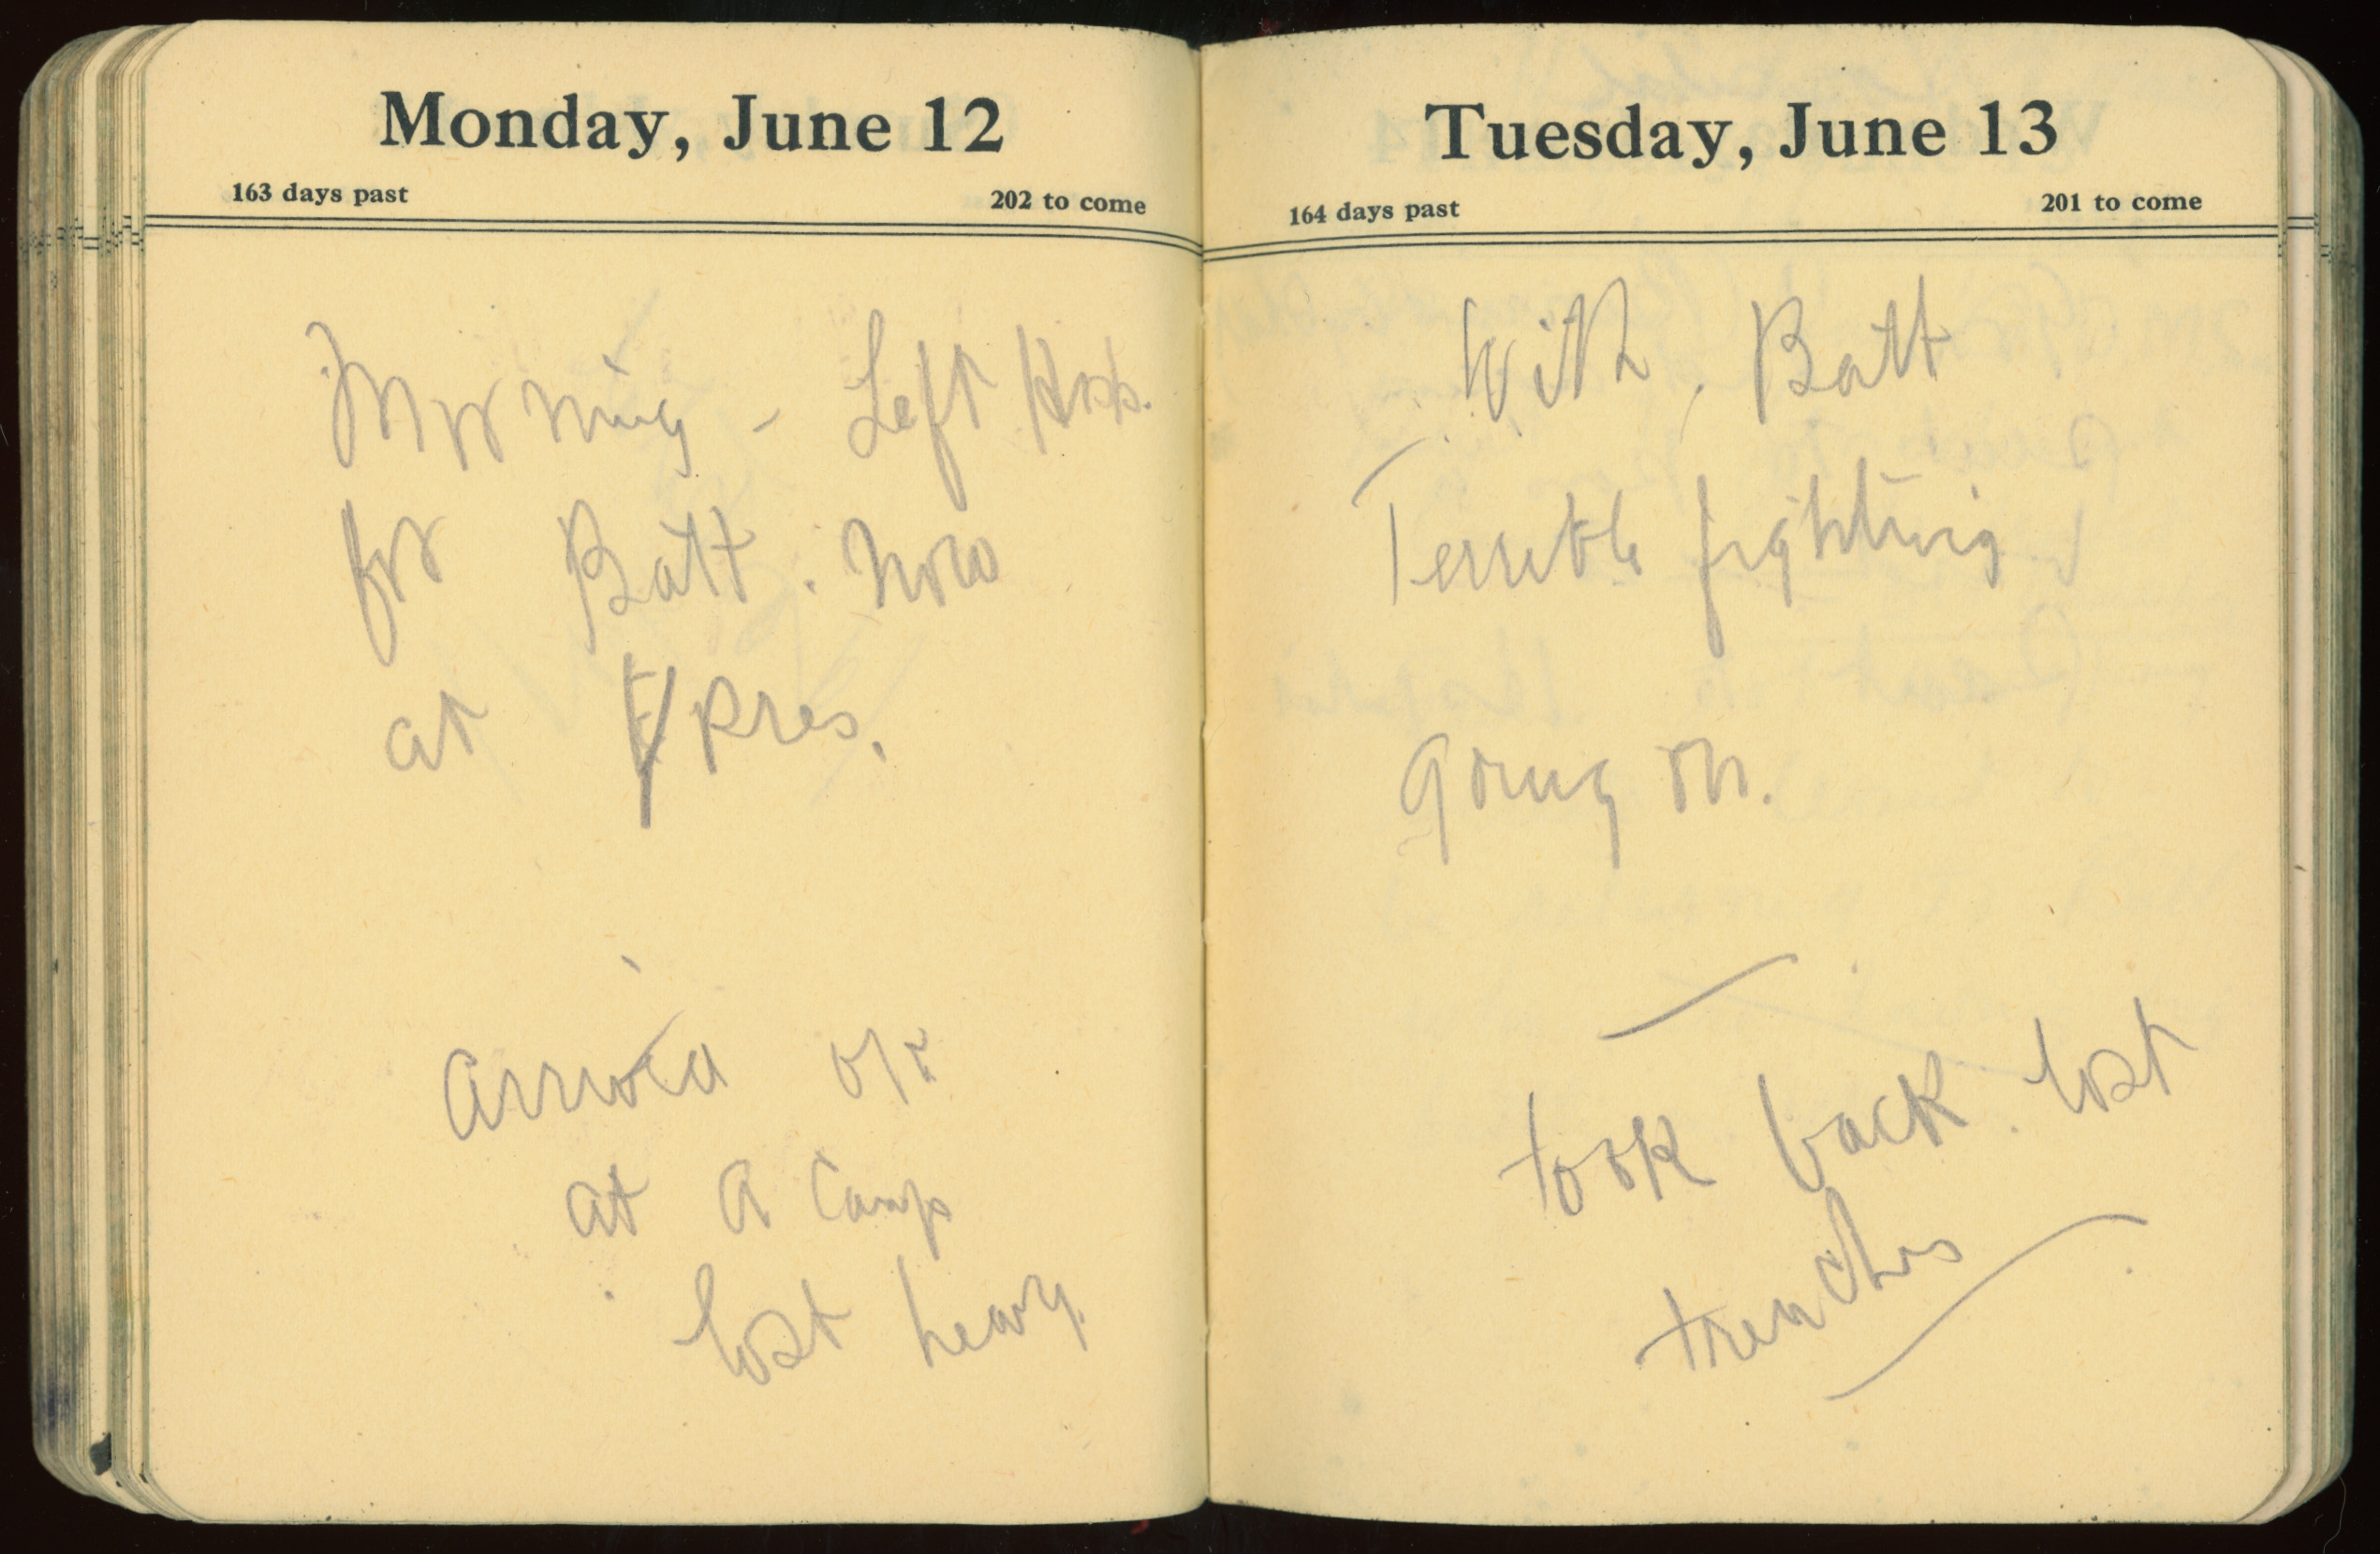 Monday, June 12
163 days past 202 to come
Morning - Left Hosp.
for Batt. now
at Ypres.
Arrived O/K
at A Camp
lost heavy
Tuesday, June 13
164 days past 201 to come
With Batt
Terrible fighting
going on.
took back lost
trenches